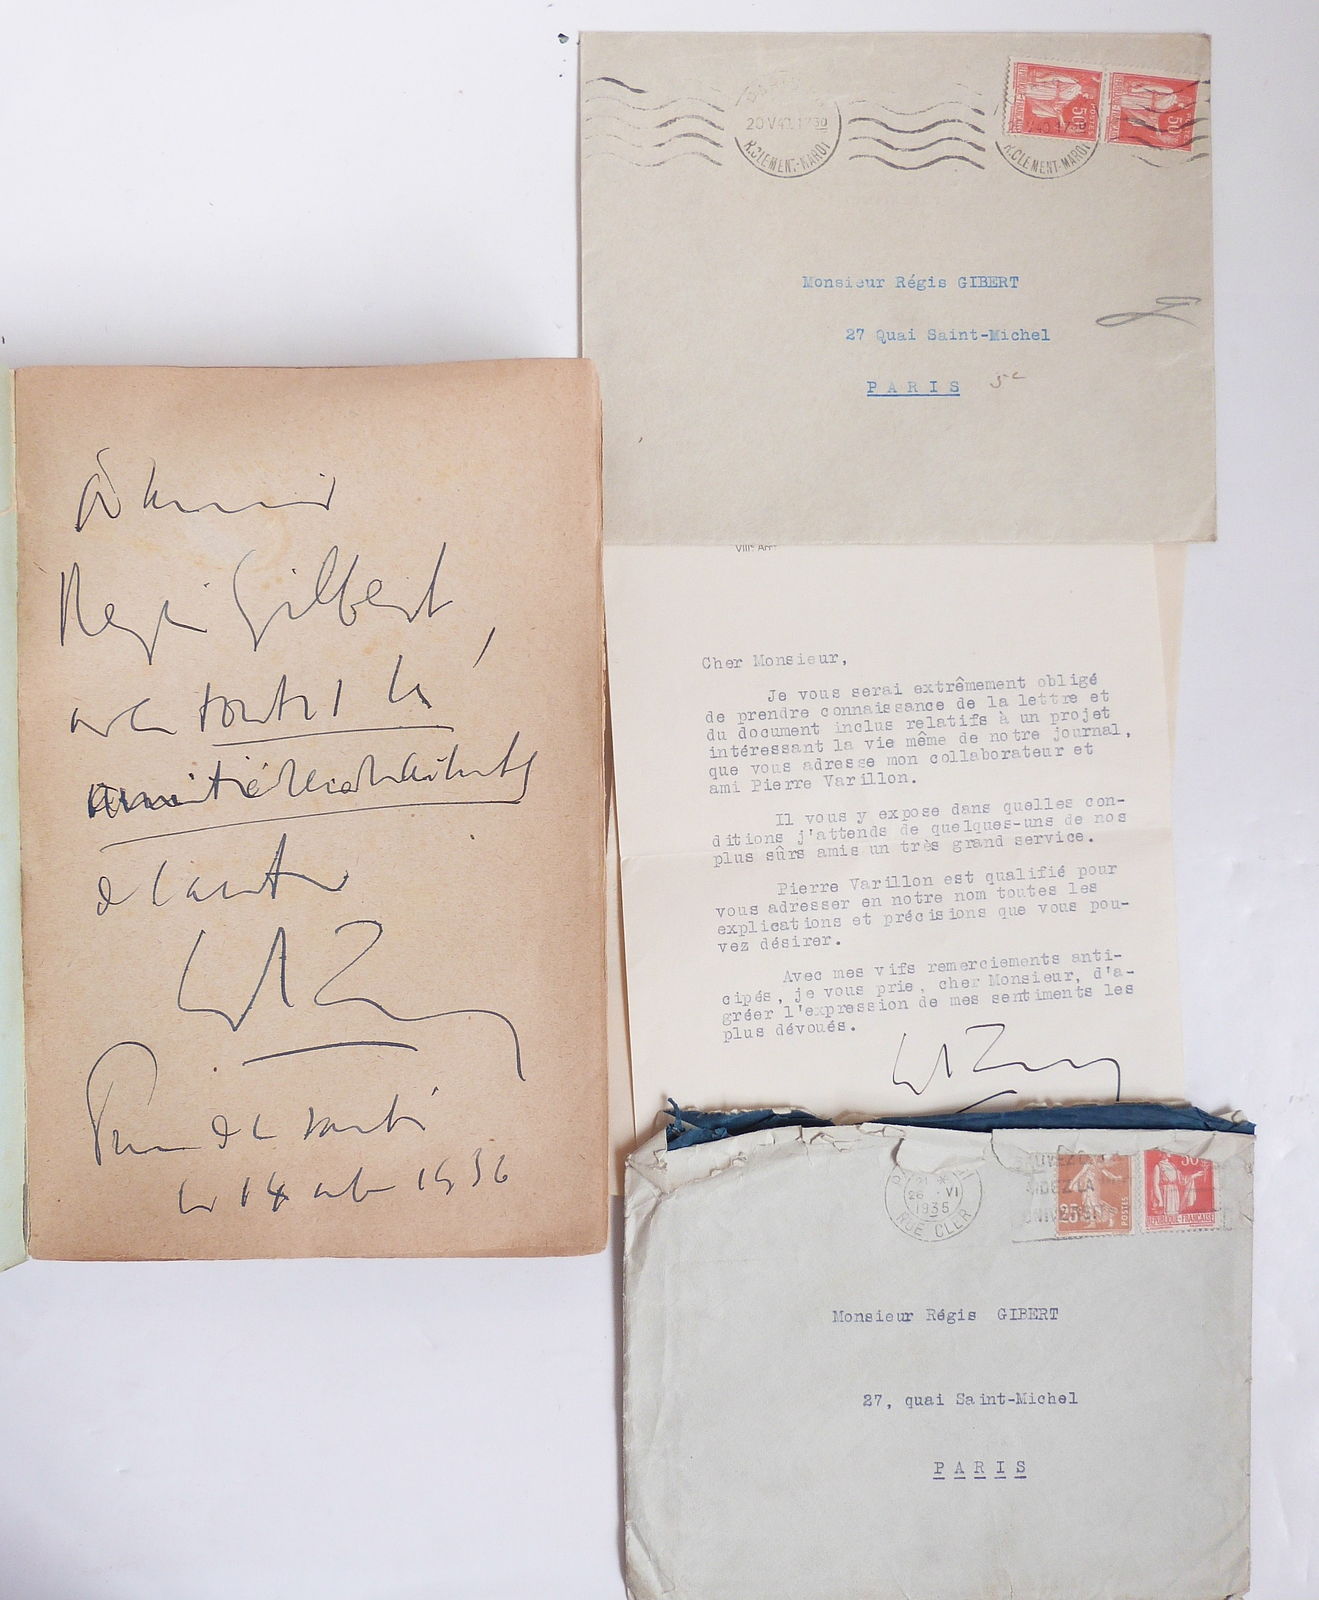 à Monsieur
Régis Gilbert,
avec toute la
amitié reconnaissante
de l'auteur
Prison de la Santé
le 14 1936
20 V 40 17 30
R. CLEMENT-MAROT
R. CLEMENT-MAROT
50
POSTES
50
Monsieur Régis GIBERT
27 Quai Saint-Michel
PARIS
VIIIe Arrt
Cher Monsieur,
Je vous serai extrêmement obligé
de prendre connaissance de la lettre et
du document inclus relatifs à un projet
intéressant la vie même de notre journal,
que vous adresse mon collaborateur et
ami Pierre Varillon.
Il vous y expose dans quelles con-
ditions j'attends de quelques-uns de nos
plus sûrs amis un très grand service.
Pierre Varillon est qualifié pour
vous adresser en notre nom toutes les
explications et précisions que vous pou-
vez désirer.
Avec mes vifs remerciements anti-
cipés, je vous prie, cher Monsieur, d'a-
gréer l'expression de mes sentiments les
plus dévoués.
26 VI
1935
RUE CLER
25
POSTES
50
REPUBLIQUE-FRANÇAISE
Monsieur Régis GIBERT
27, quai Saint-Michel
PARIS